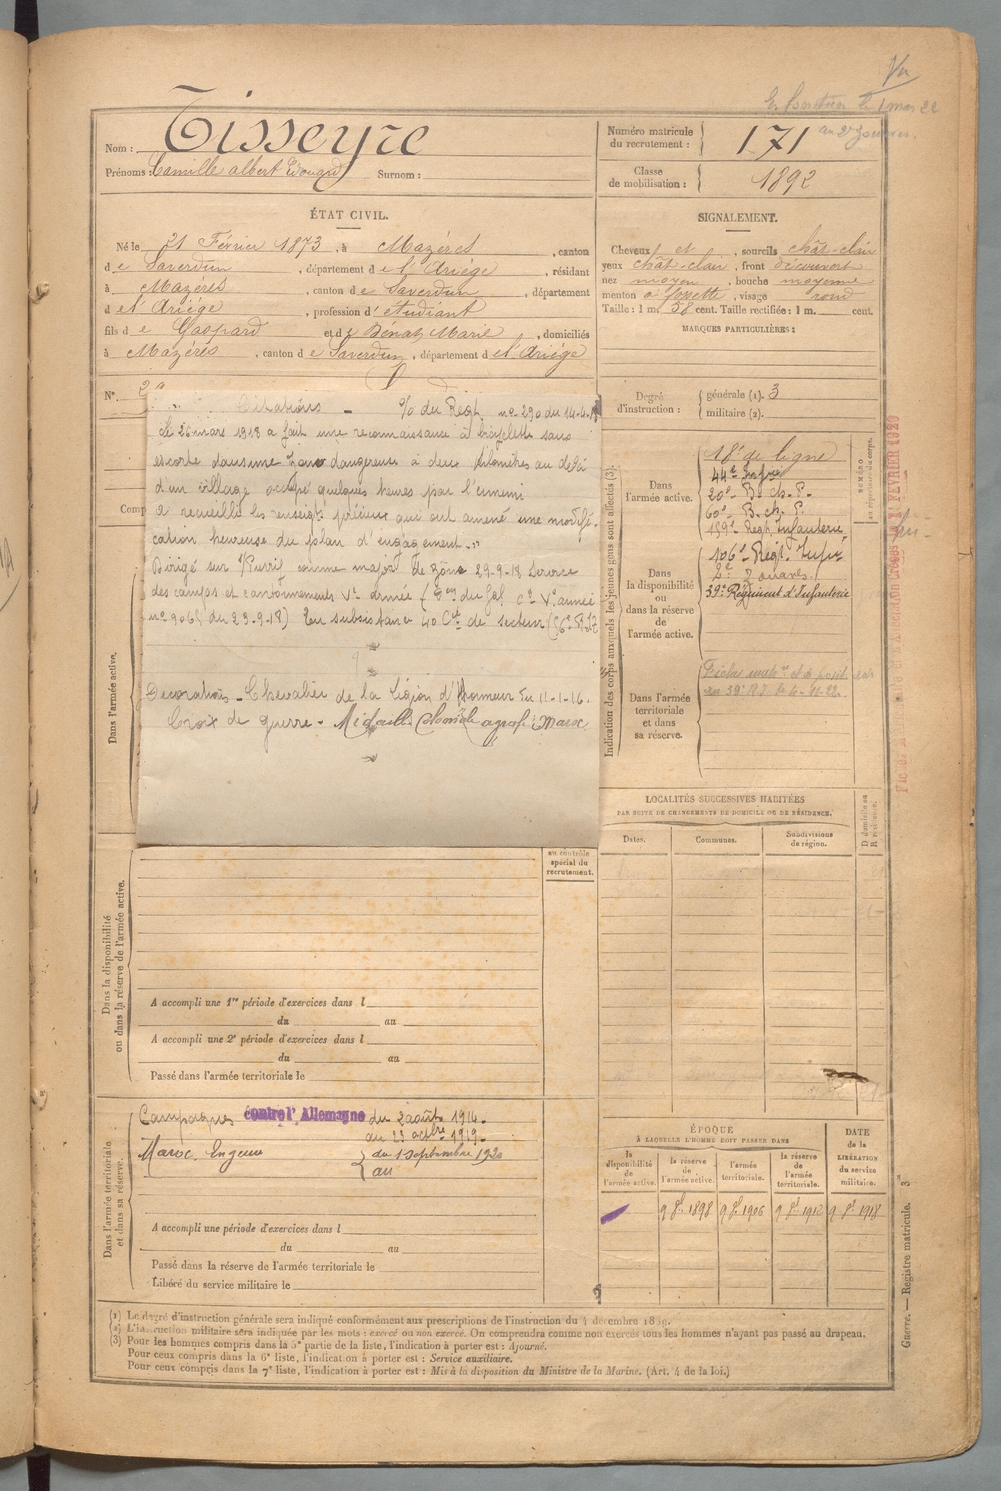 Vu
le 1 mars 22
Nom : Tisseyre
Prénoms : Camille albert Edouard Surnom :
Numéro matricule du recrutement : 171
Classe de mobilisation : 1892
ÉTAT CIVIL.
Né le 21 Février 1873, à Mazéres, canton
de Saverdun, département de l'Ariége, résidant
à Mazéres, canton de Saverdun, département
de l'Ariége, profession d'étudiant
fils de Gaspard et de Bénat Marie, domiciliés
à Mazéres, canton de Saverdun, département de l'Ariége
SIGNALEMENT.
Cheveux et, sourcils chât-clair
yeux chât-clair, front découvert
nez moyen, bouche moyenne
menton à fossette, visage rond
Taille : 1 m. 58 cent. Taille rectifiée : 1 m. cent.
MARQUES PARTICULIÈRES :
N°.
Comp
Citations - O/ du Regt. n° 290 du 14-4-18
Le 26 mars 1918 a fait une reconnaissance à bicyclette sans
escorte dans une zone dangereuse à deux kilomètres au delà
d'un village occupé quelques heures par l'ennemi
A recueilli les renseigts précieux qui ont amené une modifi-
cation heureuse du plan d'engagement.-"
Dirigé sur comme major de zône 29-9-18 Service
des camps et cantonnements Ve armée ( du Gal Ct Ve armée
n° 906 du 23-9-18) En subsistance 40 Cie de secteur
Decorations - Chevalier de la Légion d'Honneur du 11-1-16.
Croix de guerre - Médaille Coloniale agrafe : Maroc
Degré d'instruction : générale (1). 3
militaire (2).
Indication des corps auxquels les jeunes gens sont affectés (3).
NUMÉRO
Dans l'armée active.
18e de ligne
44e Infrie
20e B. ch. P.
60e B. ch. P.
159e Regt Infanterie
Dans la disponibilité ou dans la réserve de l'armée active.
106e Régt. Infie
2e Zouaves.
39e Regiment d'Infanterie
Dans l'armée territoriale et dans sa réserve.
39e R.I. le 6-11-22.
FÉVRIER 1920
LOCALITÉS SUCCESSIVES HABITÉES
PAR SUITE DE CHANGEMENTS DE DOMICILE OU DE RÉSIDENCE.
Dates. Communes. Subdivisions de région. D domicile ou R résidence.
Dans l'armée active.
au contrôle spécial du recrutement.
Dans la disponibilité ou dans la réserve de l'armée active.
A accompli une 1re période d'exercices dans l
du au
A accompli une 2e période d'exercices dans l
du au
Passé dans l'armée territoriale le
Dans l'armée territoriale et dans sa réserve.
Campagnes contre l'Allemagne du 2 août 1914.
au 23 octbre 1919.
Maroc, En guerre du 1 septembre 1920
au
A accompli une période d'exercices dans l
du au
Passé dans la réserve de l'armée territoriale le
Libéré du service militaire le
ÉPOQUE
À LAQUELLE L'HOMME DOIT PASSER DANS
la disponibilité de l'armée active. la réserve de l'armée active. l'armée territoriale. la réserve de l'armée territoriale.
DATE de la LIBÉRATION du service militaire.
9 8bre 1898 9 8bre 1906 9 8bre 1912 9 8bre 1918
Guerre. — Registre matricule. 3
(1) Le degré d'instruction générale sera indiqué conformément aux prescriptions de l'instruction du 4 décembre 1889.
(2) L'instruction militaire sera indiquée par les mots : exercé ou non exercé. On comprendra comme non exercés tous les hommes n'ayant pas passé au drapeau.
(3) Pour les hommes compris dans la 5e partie de la liste, l'indication à porter est : Ajourné.
Pour ceux compris dans la 6e liste, l'indication à porter est : Service auxiliaire.
Pour ceux compris dans la 7e liste, l'indication à porter est : Mis à la disposition du Ministre de la Marine. (Art. 4 de la loi.)